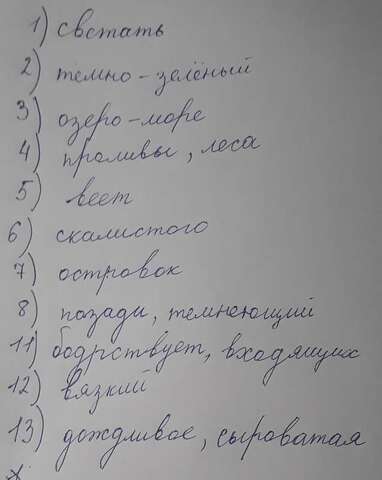 1) свстать
2) темно-зелёный
3) озеро-море
4) проливы, леса
5) веет
6) скалистого
7) островок
8) позади, темнеющий
11) бодрствует, входящих
12) вязкий
13) дождливое, сыроватая